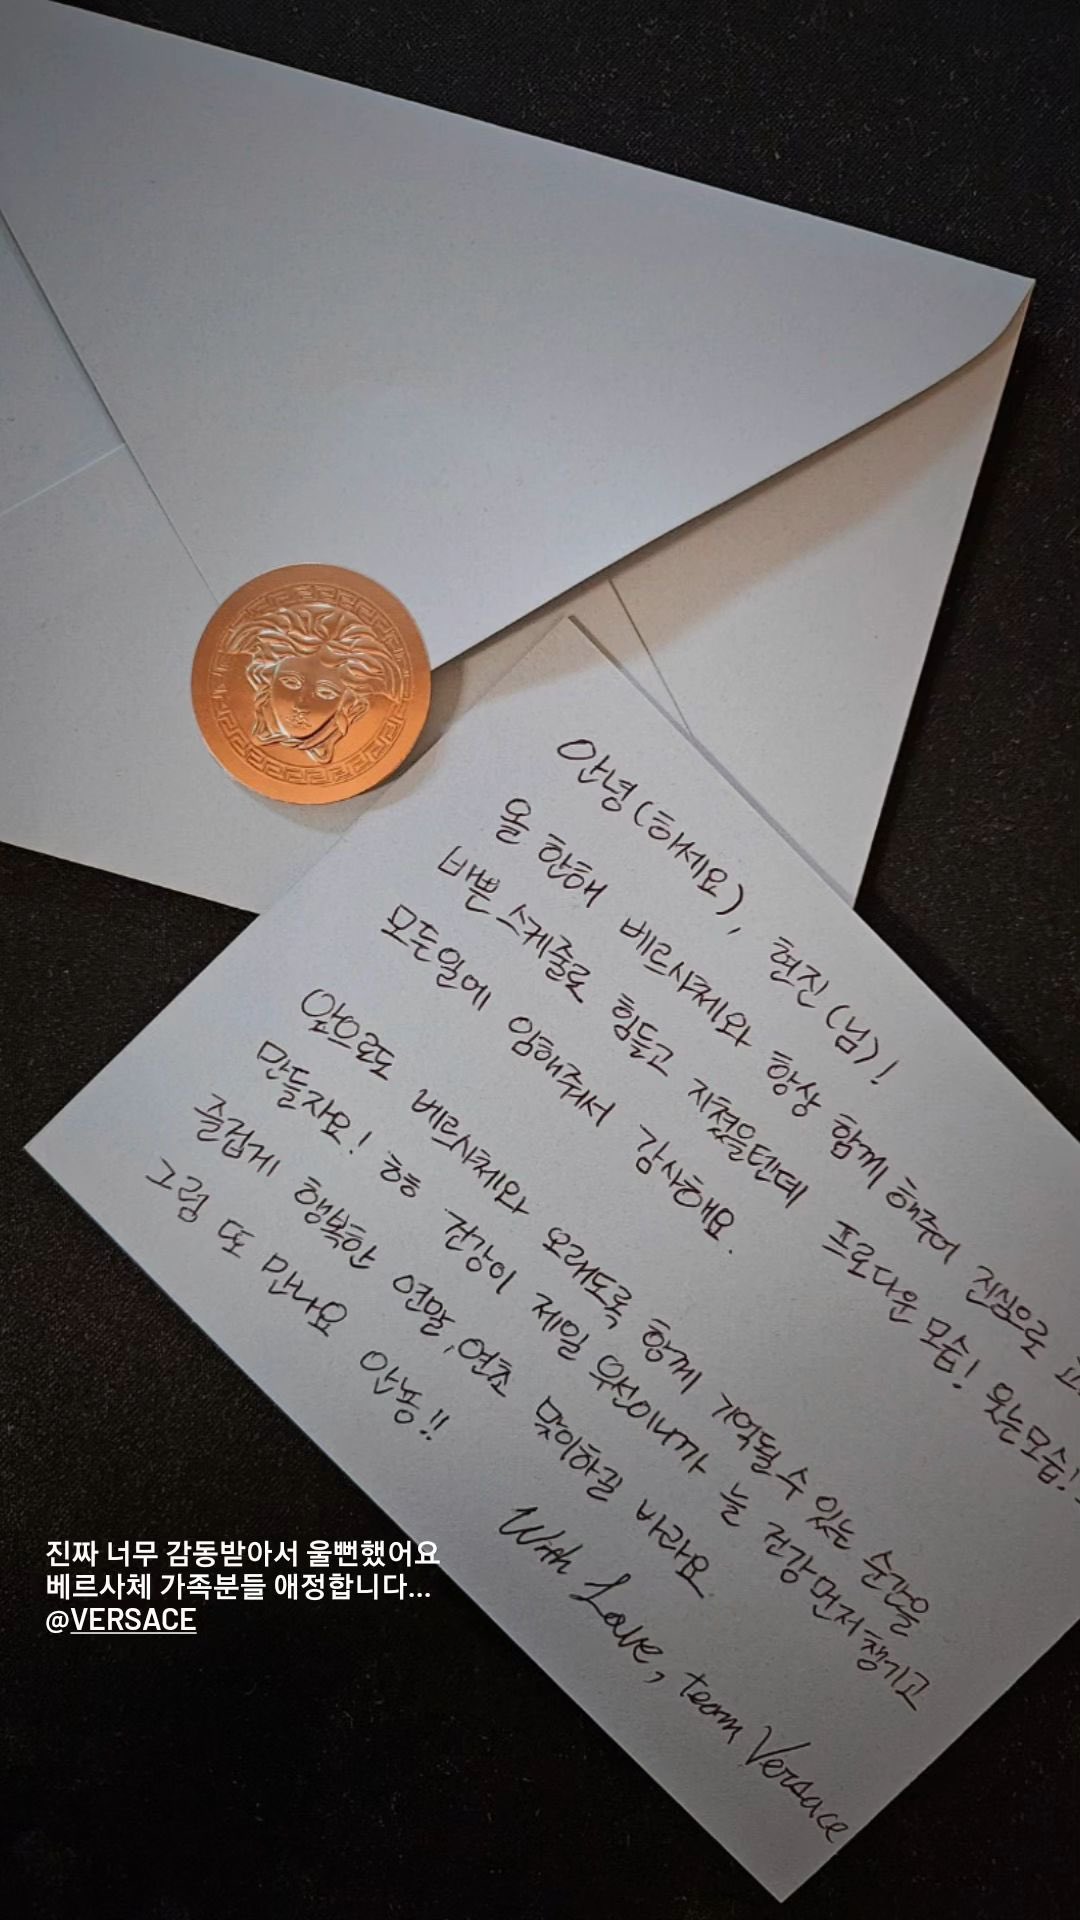 안녕(하세요), 현진(님)!
올 한해 베르사체와 항상 함께 해주어 진심으로
바쁜 스케줄로 힘들고 지쳤을텐데 프로다운 모습! 웃는모습!
모든일에 임해줘서 감사해요.
앞으로도 베르사체와 오래도록 함께 기억될 수 있는 순간을
만들자요! 흐흐 건강이 제일 우선이니까 늘 건강 먼저 챙기고
즐겁게 행복한 연말, 연초 맞이하길 바라요.
그럼 또 만나요
안뇽!!
With Love, team Versace
진짜 너무 감동받아서 울뻔했어요
베르사체 가족분들 애정합니다...
@VERSACE